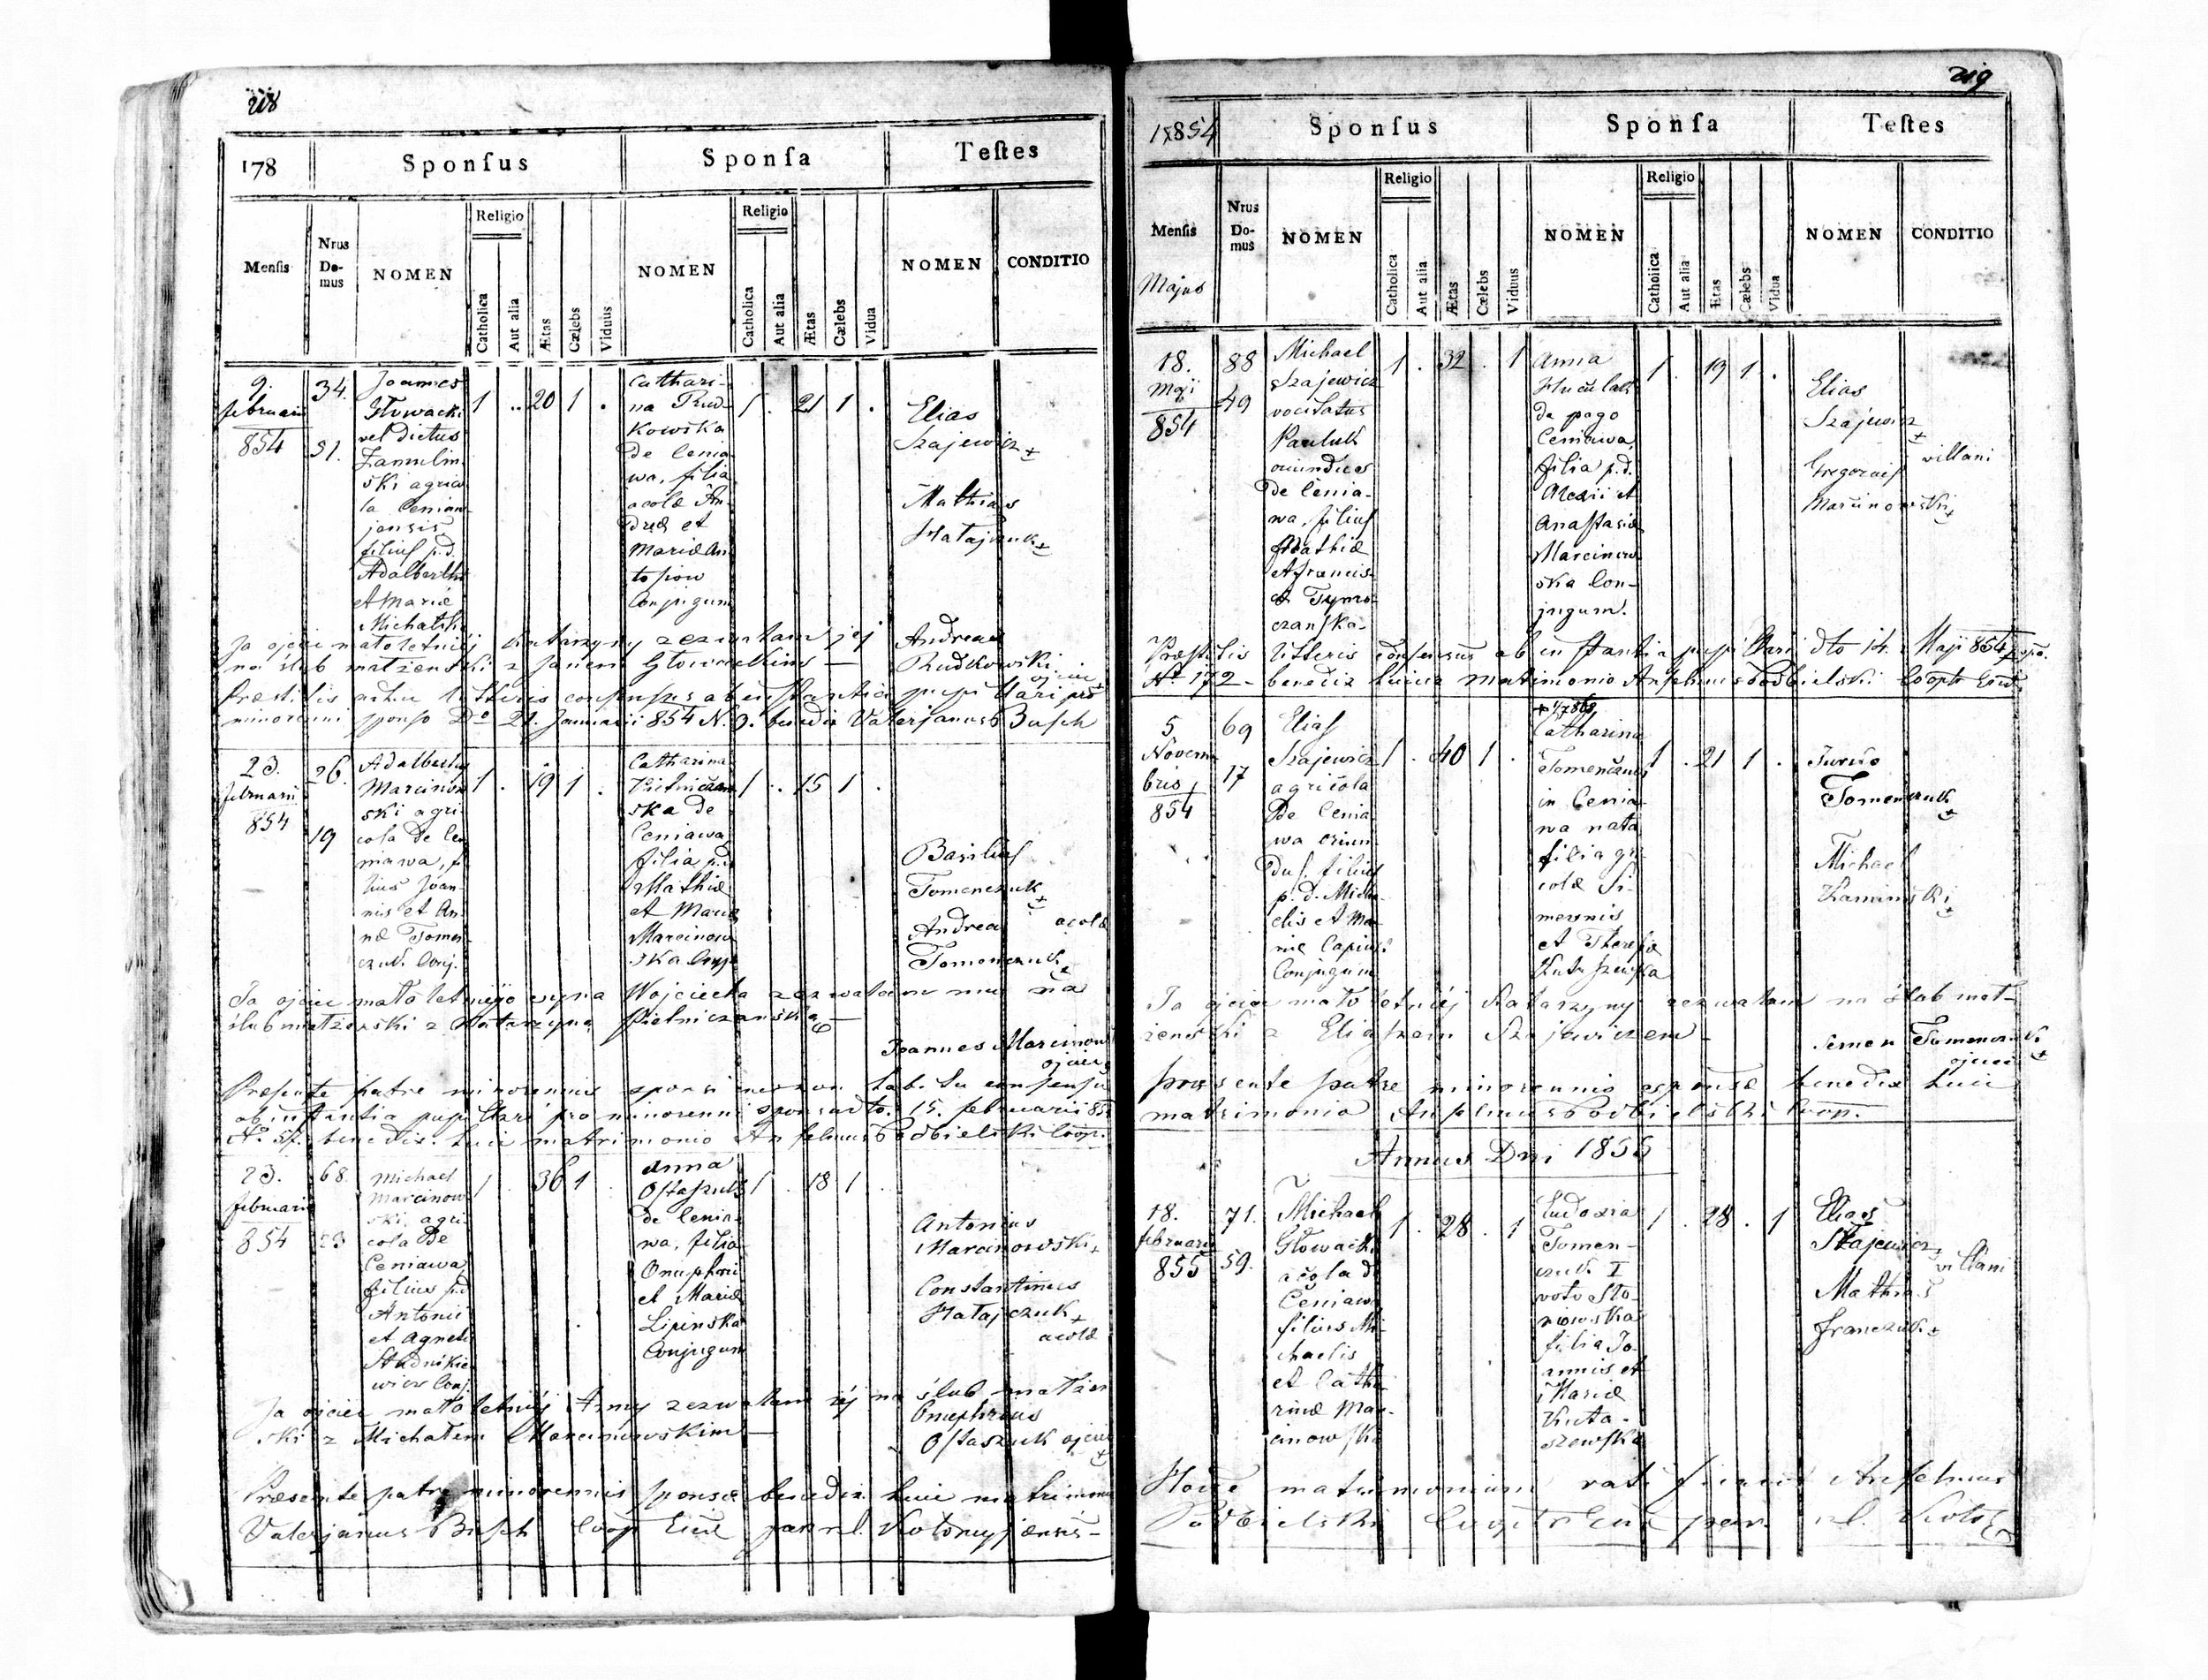 218
178
Sponſus
Sponſa
Teſtes
Menſis
Nrus Do-mus
NOMEN
Religio
Catholica
Aut alia
Ætas
Cælebs
Viduus
NOMEN
Religio
Catholica
Aut alia
Ætas
Cælebs
Vidua
NOMEN
CONDITIO
9.
februarii
854
34.
51.
Joannes
Głowacki
vel dictus
Zamulin
ski agrico
la Cenian
jensis
filius p.d.
Adalberthi
et Mariæ
Michalski
1 . . 20 1 .
Cathari-
na Rud-
kowska
de Cenia
wa, filia
acolæ An-
dreæ et
Mariæ An
Conjugum
1 . 21 1 .
Elias
Szajewicz +
Mathias
Hatajczuk +
Ja ojciec małoletniéj Katarzyny zezwalam jej
na ślub małżeński z Janem Głowackim —
Andreas
Rudkowski
ojciec +
minorenni sponso Dto 21. Januarii 854 N. 9. benedix Valerjanus Busch
23.
februarii
854
26.
19
Adalbertus
Marcinow
ski agri
cola de Cen
iawa, fi
lius Joan-
nis et An-
næ Tomen
czuk Conj.
1 . 19 1 .
Catharina
ska de
Ceniawa
filia p.d.
Mathiæ
et Mariæ
Marcinow
ska Conj.
1 . 15 1 .
Basilius
Tomenczuk +
Andreas
acolæ
Tomenczuk +
Ja ojciec małoletniego syna Wojciecha zezwalam mu na
ślub małżeński z Katarzyną
Joannes Marcinow
ojciec
Præsente patre minorennis sponsi
ab instantia pupillari pro minorenni sponsa dto. 15. februarii 85
No 57. benedix huic matrimonio Anselmus Podbielski Coop.
23.
februarii
854
68
23
Michael
Marcinow
ski, agri
cola de
Ceniawa
filius p.d.
Antonii
et Agnetis
Studnikie
wicz Conj.
1 . 36 1 .
Anna
Ostaszuk
de Cenia
wa, filia
Onuphrii
et Mariæ
Lipinska
Conjugum
1 . 18 1 .
Antonius
Marcinowski +
Constantinus
Hatajczuk +
acolæ
Ja ojciec małoletniéj Anny zezwalam jéj na ślub małżeń
ski z Michałem Marcinowskim —
Onuphrius
Ostaszuk ojciec +
Præsente patre minorennis sponsæ benedix huic matrimonio
Valerjanus Busch Coop Eccl par r.l. Kołomyjensis —
219
1854
Sponſus
Sponſa
Teſtes
Menſis
Majus
Nrus Do-mus
NOMEN
Religio
Catholica
Aut alia
Ætas
Cælebs
Viduus
NOMEN
Religio
Catholica
Aut alia
Ætas
Cælebs
Vidua
NOMEN
CONDITIO
18.
Maji
854
88
49
Michael
Szajewicz
vocitatus
Pauluk
oriundus
de Cenia-
wa, filius
Mathiæ
et Francis-
Tymo-
czanska
1 . 32 . 1
Anna
de pago
Ceniawa
filia p.d.
Alexii et
Anastasiæ
Marcinow
ska Con-
jugum.
1 . 19 1 .
Elias
Szajewicz +
villani
Gregorius
Marcinowski +
Præstitis litteris consensus ab instantia pupillari dto 14. Maji 854
No 172 — benedix huic matrimonio Anselmus Podbielski
5
Novem
bris
854
69
17
Elias
Szajewicz
agricola
de Cenia
wa oriun
dus, filius
p.d. Micha
elis et Ma
riæ
Conjugum
1 . 40 1 .
Catharina
Tomenczuk
in Cenia-
wa nata
filia gri
colæ Si-
meonis
et Theresiæ
Kutaszewska
1 . 21 1 .
Tomenczuk +
Michael
Kaminski +
Ja ojciec małoletniéj Katarzyny zezwalam na ślub mał-
żenski z Eliaszem Szajewiczem —
Semen Tomenczuk
ojciec +
præsente patre minorennis sponsæ benedix huic
matrimonio Anselmus Podbielski Coop.
Annus Dni 1855
18.
februarii
855
71.
59.
Michael
Głowacki
acola de
Ceniawa
filius Mi-
chaelis
et Catha-
rinæ Mar-
cinowski
1 . 28 . 1
Eudoxia
Tomen-
czuk I
voto Sto-
nowska
filia Jo-
annis et
Mariæ
Kuta-
szewska
1 . 28 . 1
Elias
Szajewicz +
villani
Mathias
Franczuk +
Hocce matrimonium ratificavit Anselmus
Podbielski